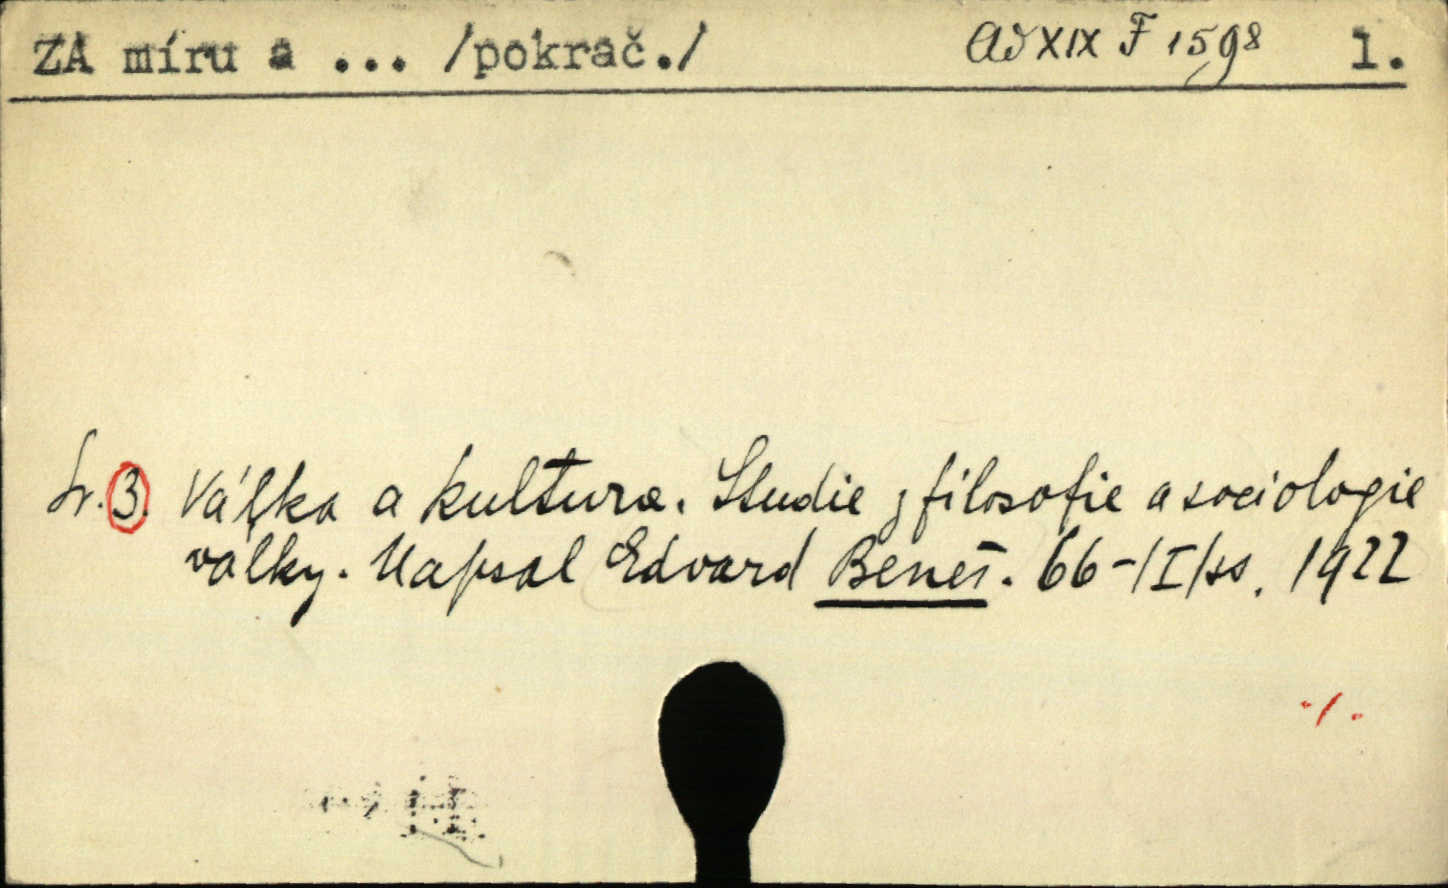 ZA míru a ... /pokrač./ Ad XIX F 1598 1.
Sv. 3. Válka a kultura. Studie z filosofie a sociologie
války. Napsal Edvard Beneš. 66-/I/ss. 1922
./.